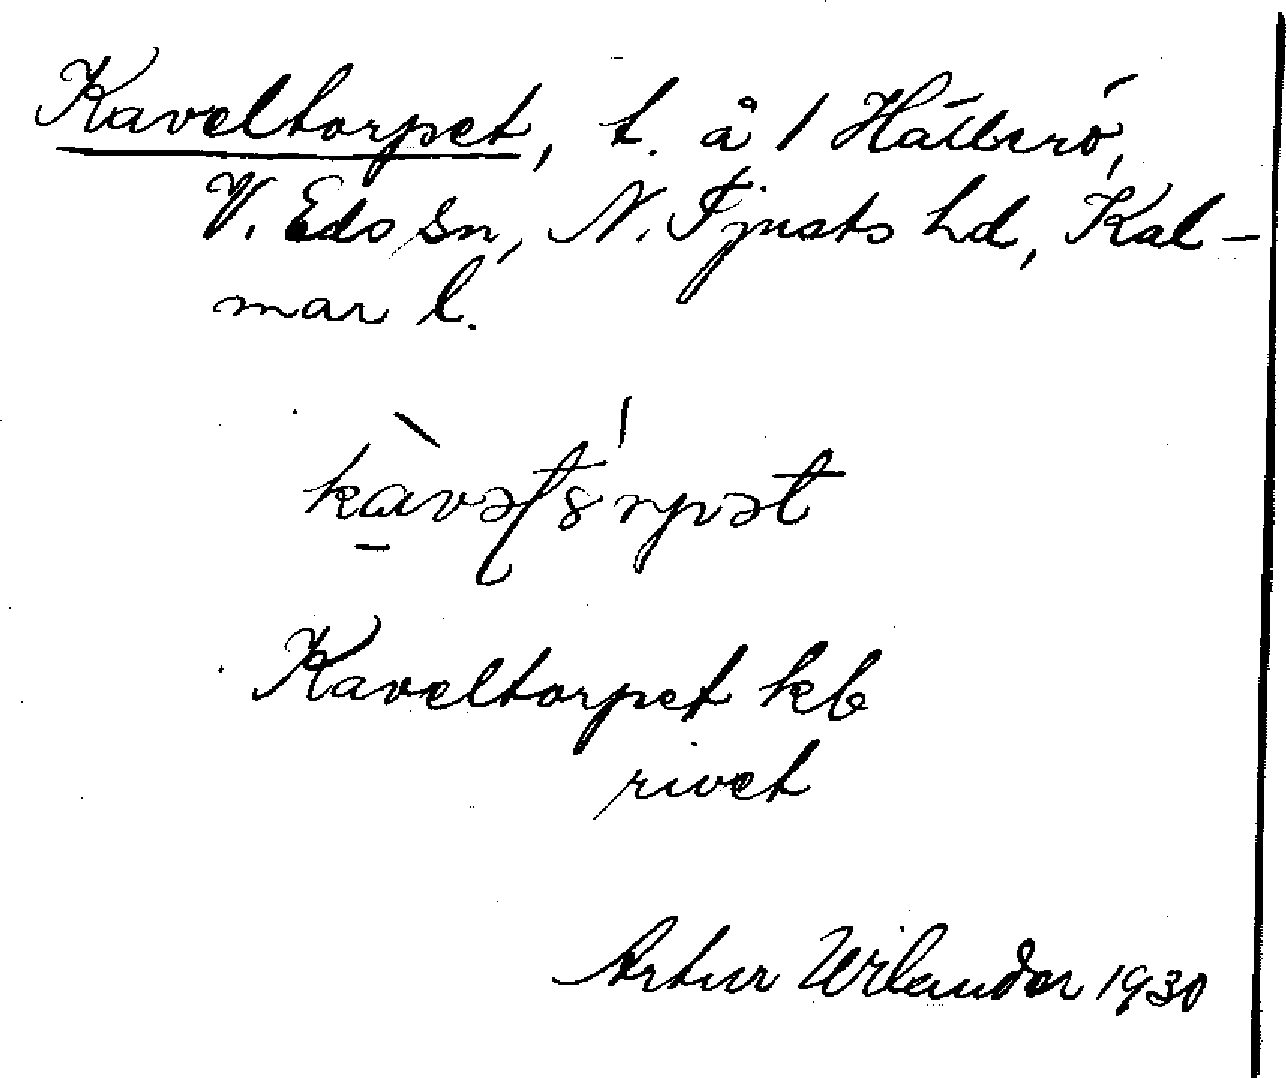 Kaveltorpet, t. å 1 Hälberö,
V. Eds sn, N. Tjusts hd, Kal-
mar l.
Kaveltorpet kb
rivet
Artur Wilander 1930